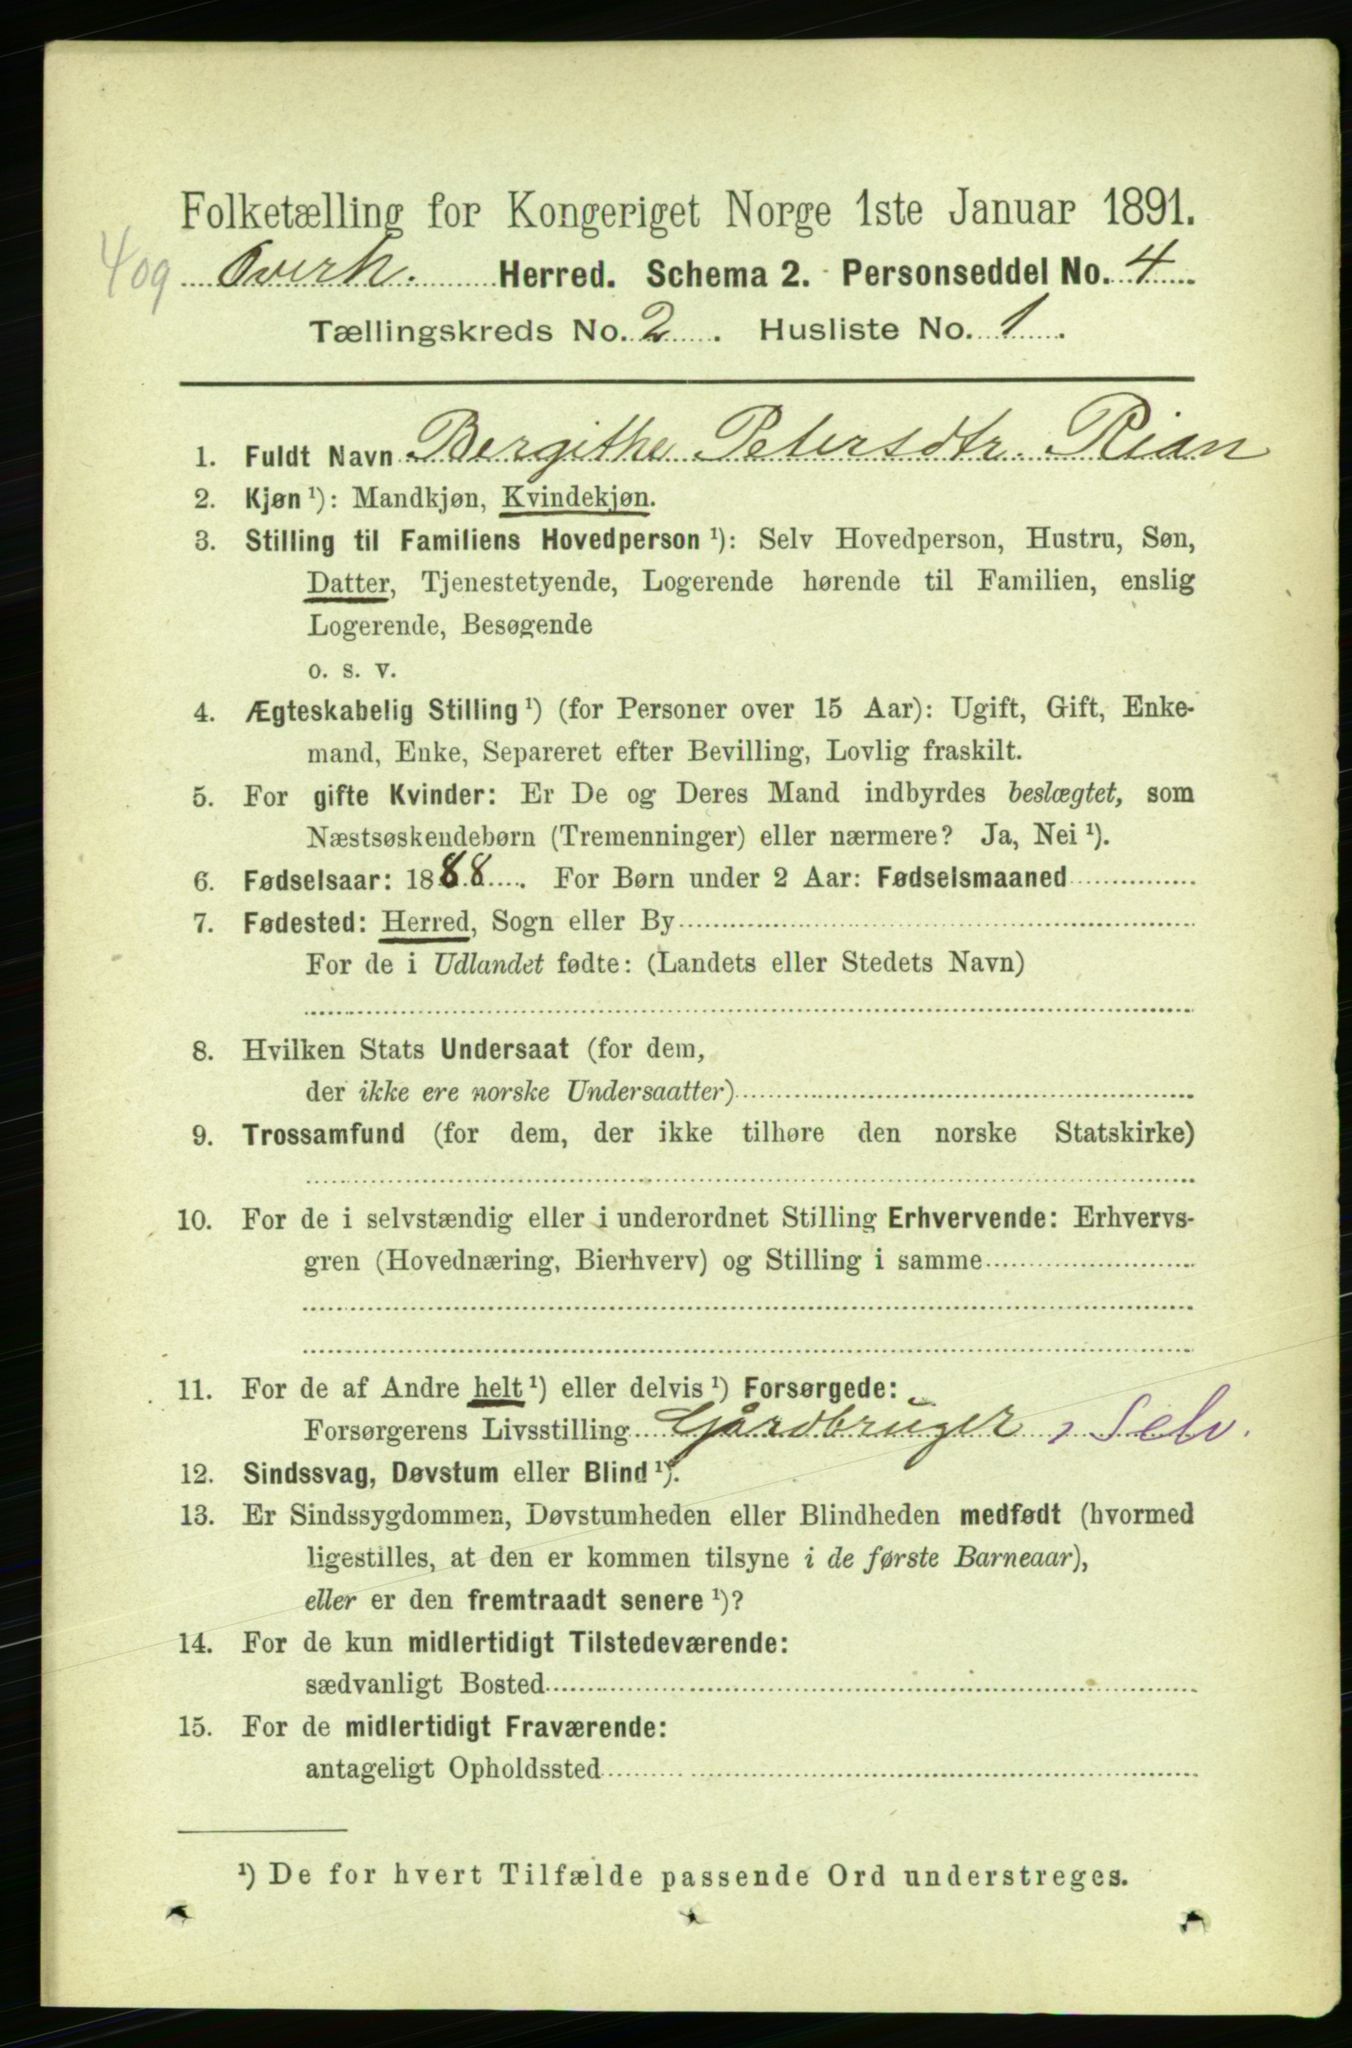 Folketælling for Kongeriget Norge 1ste Januar 1891.
409 Overh. Herred. Schema 2. Personseddel No. 4
Tællingskreds No. 2. Husliste No. 1.
1. Fuldt Navn Bergithe Petersdtr. Rian
2. Kjøn ¹): Mandkjøn, Kvindekjøn.
3. Stilling til Familiens Hovedperson ¹): Selv Hovedperson, Hustru, Søn,
Datter, Tjenestetyende, Logerende hørende til Familien, enslig
Logerende, Besøgende
o. s. v.
4. Ægteskabelig Stilling ¹) (for Personer over 15 Aar): Ugift, Gift, Enke-
mand, Enke, Separeret efter Bevilling, Lovlig fraskilt.
5. For gifte Kvinder: Er De og Deres Mand indbyrdes beslægtet, som
Næstsøskendebørn (Tremenninger) eller nærmere? Ja, Nei ¹).
6. Fødselsaar: 1888. For Børn under 2 Aar: Fødselsmaaned
7. Fødested: Herred, Sogn eller By
For de i Udlandet fødte: (Landets eller Stedets Navn)
8. Hvilken Stats Undersaat (for dem,
der ikke ere norske Undersaatter)
9. Trossamfund (for dem, der ikke tilhøre den norske Statskirke)
10. For de i selvstændig eller i underordnet Stilling Erhvervende: Erhvervs-
gren (Hovednæring, Bierhverv) og Stilling i samme
11. For de af Andre helt ¹) eller delvis ¹) Forsørgede:
Forsørgerens Livsstilling Gårdbruger, Selv.
12. Sindssvag, Døvstum eller Blind ¹).
13. Er Sindssygdommen, Døvstumheden eller Blindheden medfødt (hvormed
ligestilles, at den er kommen tilsyne i de første Barneaar),
eller er den fremtraadt senere ¹)?
14. For de kun midlertidigt Tilstedeværende:
sædvanligt Bosted
15. For de midlertidigt Fraværende:
antageligt Opholdssted
¹) De for hvert Tilfælde passende Ord understreges.